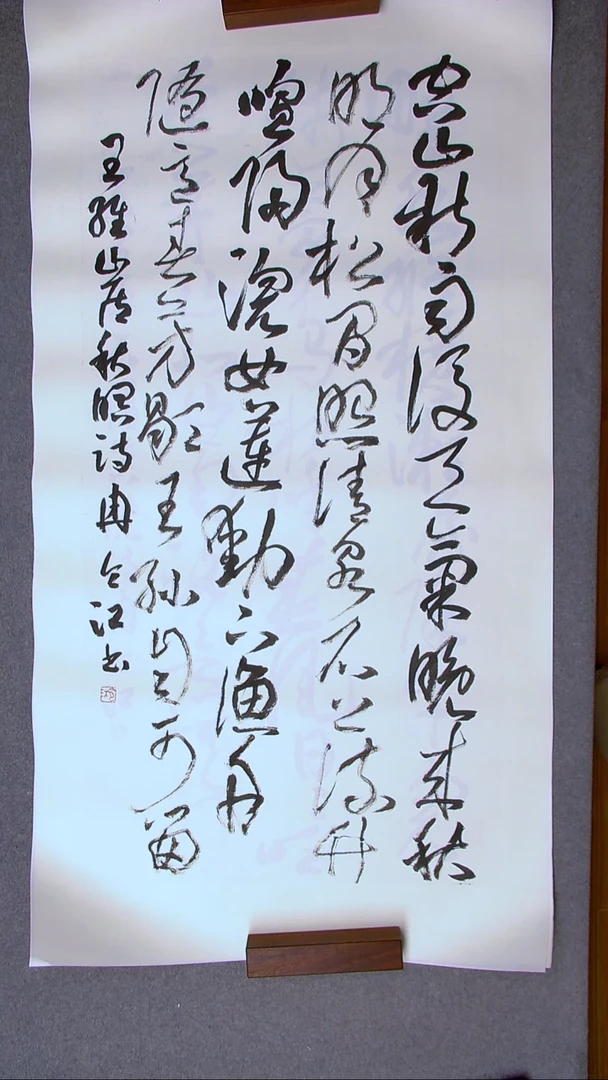 空山新雨後天氣晚来秋
明月松間照清泉石上流竹
喧歸浣女蓮動下漁舟
隨意春芳歇王孫自可留
王維山居秋暝詩 冉 江書